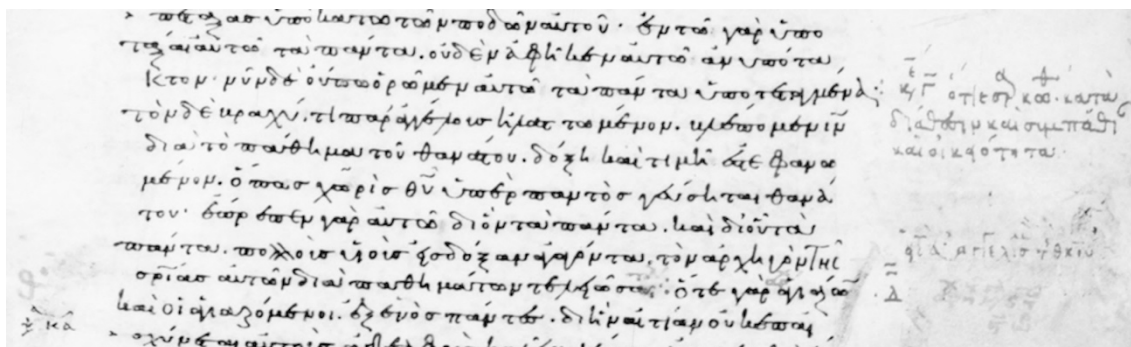 πέταξας ὑποκάτω τῶν ποδῶν αὐτοῦ· ἐν τῶ γὰρ ὑπο
τάξαι αὐτῶ τὰ πάντα. οὐδὲν ἀφῆκεν αὐτῶ ἀνυπότα
κτον· νῦν δὲ οὔπω ὁρῶμεν αὐτῶ τὰ πάντα ὑποτεταγμένα·
τὸν δὲ βραχύ τι παρ' ἀγγέλοις ἠλαττωμένον. βλέπομεν ι̅ν̅
διὰ τὸ πάθημα τοῦ θανάτου. δόξη καὶ τιμῆ ἐστεφανω
μένον. ὅπως χωρὶς θ̅υ̅ ὑπὲρ παντὸς γεύσηται θανά
του· ἔπρεπεν γὰρ αὐτῶ δι' ὃν τὰ πάντα. καὶ δι' οὗ τὰ
πάντα. πολλοὺς υἱοὺς εἰς δόξαν ἀγαγόντα. τὸν ἀρχηγὸν τῆς
σ̅ρ̅ίας αὐτῶν διὰ παθημάτων τελειῶσαι. ὅ τε γὰρ ἁγιάζων
καὶ οἱ ἁγιαζόμενοι. ἐξ ἑνὸς πάντες. δι' ἣν αἰτίαν οὐκ ἐπαι
σχύνεται αὐτοὺς ἀδελφοὺς
κατὰ
διάθεσιν καὶ συμπάθει
καὶ οἰκειότητα